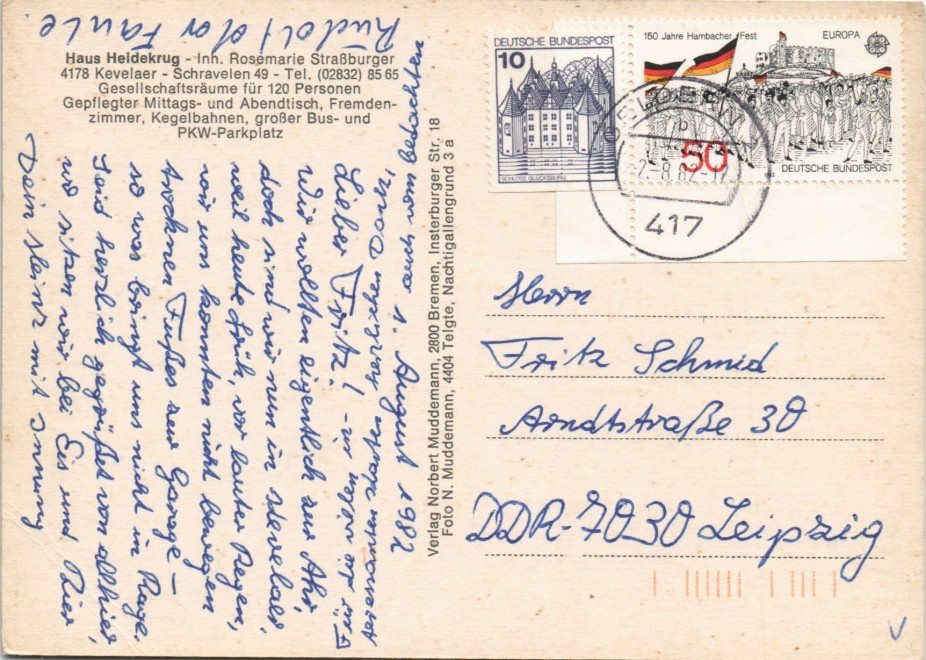 Haus Heidekrug - Inh. Rosemarie Straßburger
4178 Kevelaer - Schravelen 49 - Tel. (02832) 85 65
Gesellschaftsräume für 120 Personen
Gepflegter Mittags- und Abendtisch, Fremden-
zimmer, Kegelbahnen, großer Bus- und
PKW-Parkplatz
1. August 1982
Lieber Fritz!
Wir wollten eigentlich zur Ahr,
doch sind wir nun in Kevelaer
weil heute früh, vor lauter Regen,
wir uns konnten nicht bewegen
trocknen Fußes zur Garage –
so was bringt uns nicht in Rage.
Seid herzlich gegrüßt von allhier,
wo sitzen wir bei Eis und Bier
Dein Heinz mit
Rudolf der Faule
Verlag Norbert Muddemann, 2800 Bremen, Insterburger Str. 18
Foto N. Muddemann, 4404 Telgte, Nachtigallengrund 3 a
DEUTSCHE BUNDESPOST
10
SCHLOSS GLÜCKSBURG
150 Jahre Hambacher Fest
EUROPA
CEPT
50
DEUTSCHE BUNDESPOST
GELDERN
b
417
Herrn
Fritz Schmid
Arndtstraße 30
DDR-7030 Leipzig
V